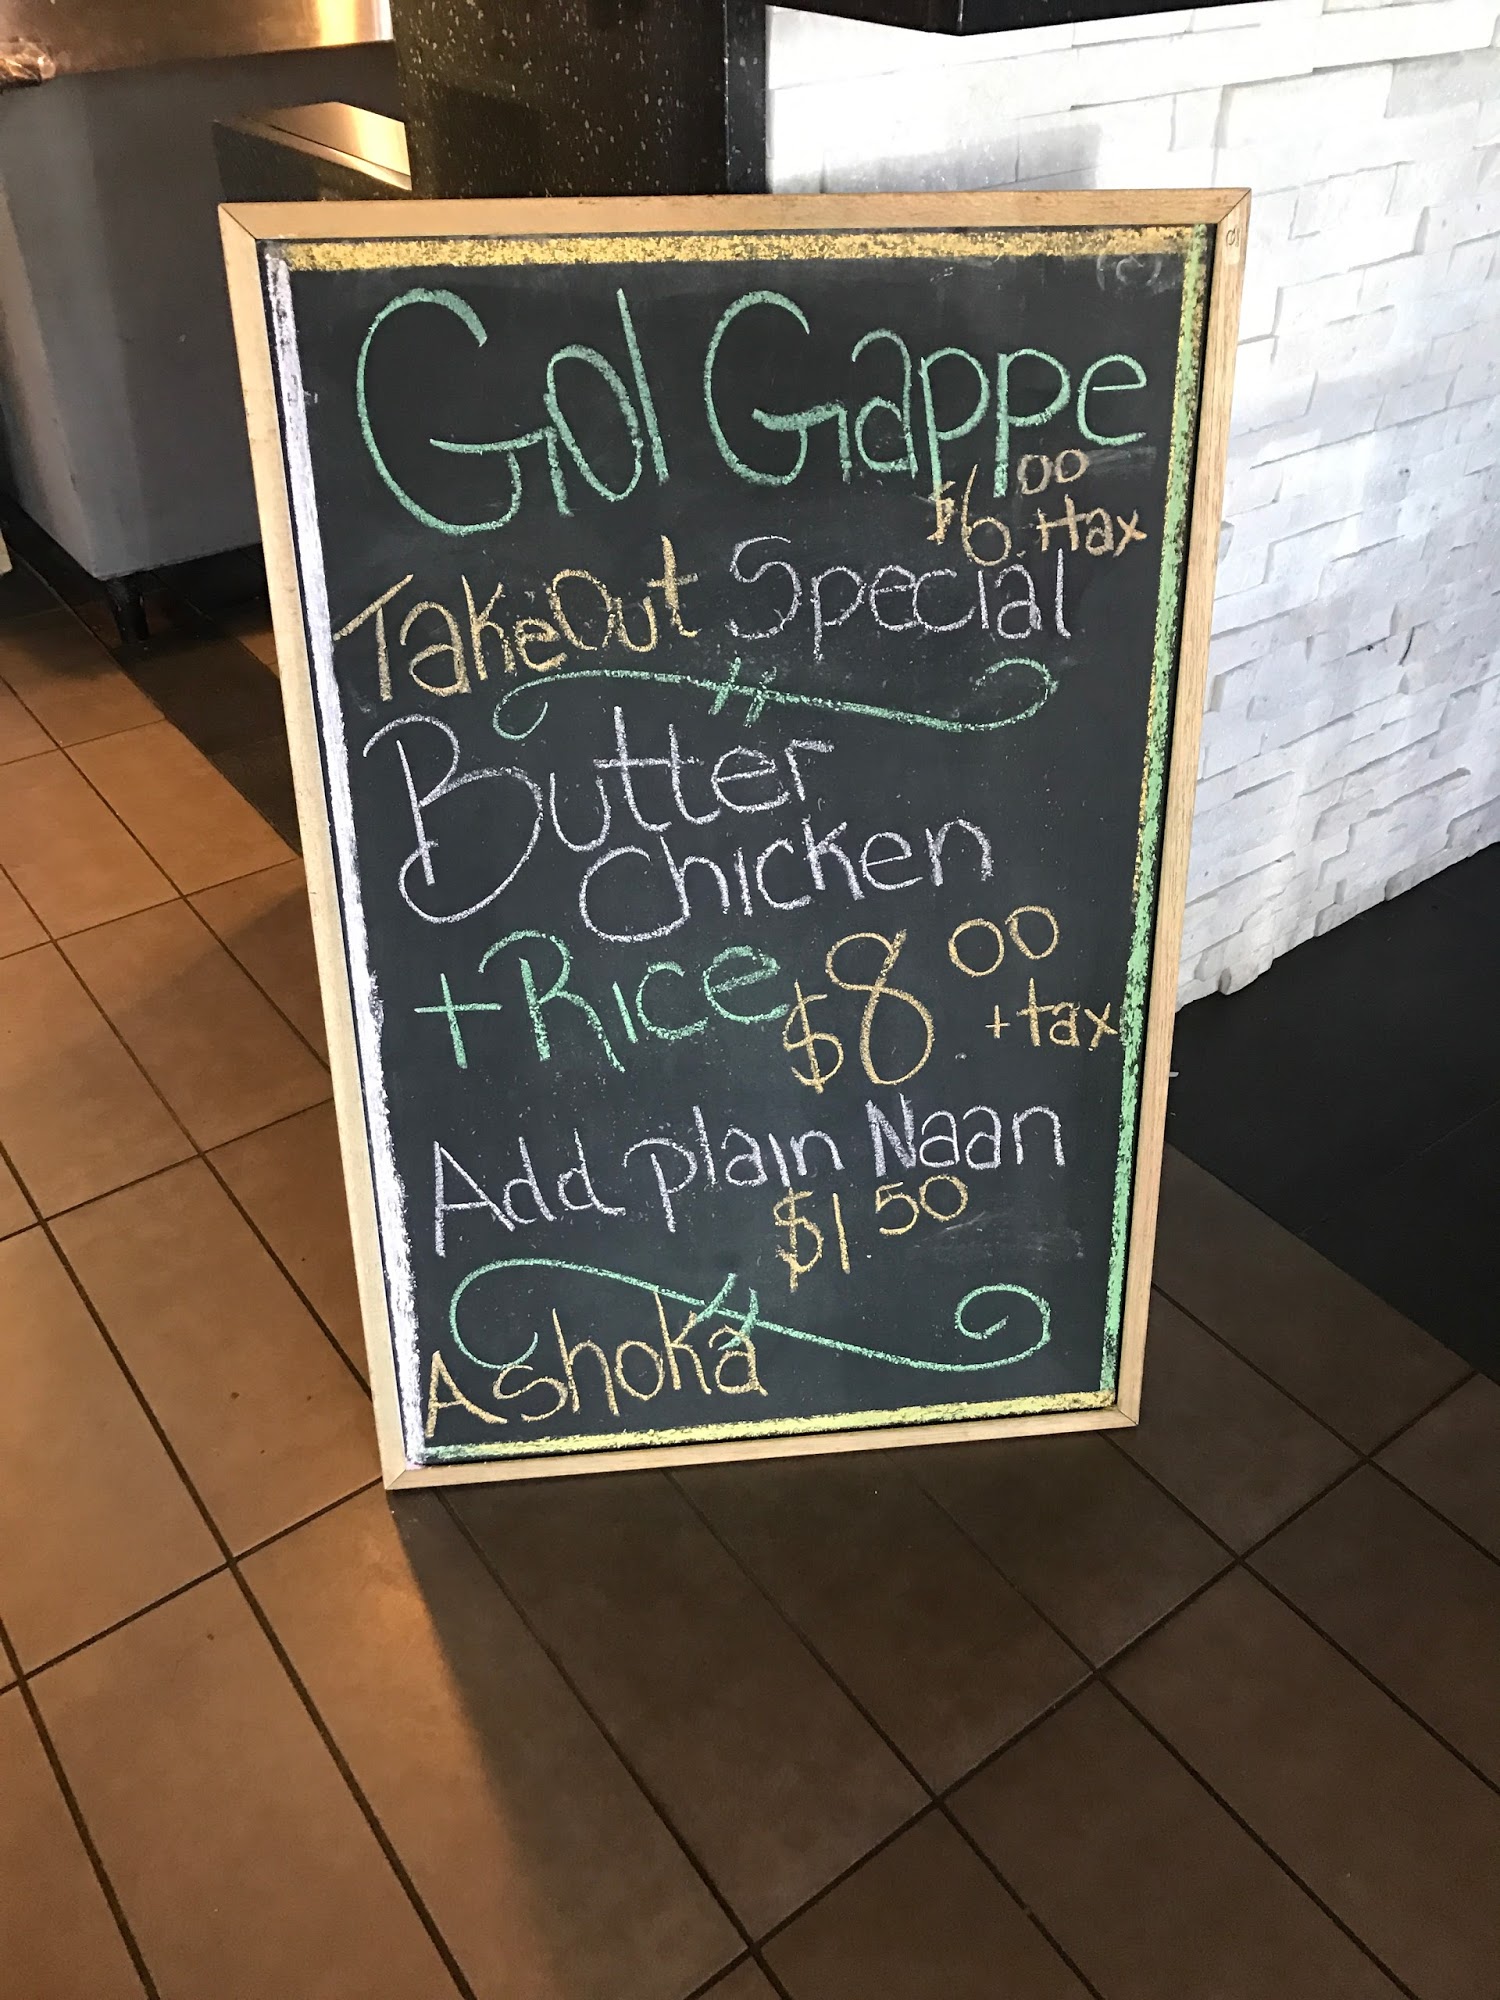 Gol Gappe
$6.00 + tax
TakeOut Special
Butter
Chicken
+ Rice $8.00
+ tax
Add plain Naan
$1.50
Ashoka